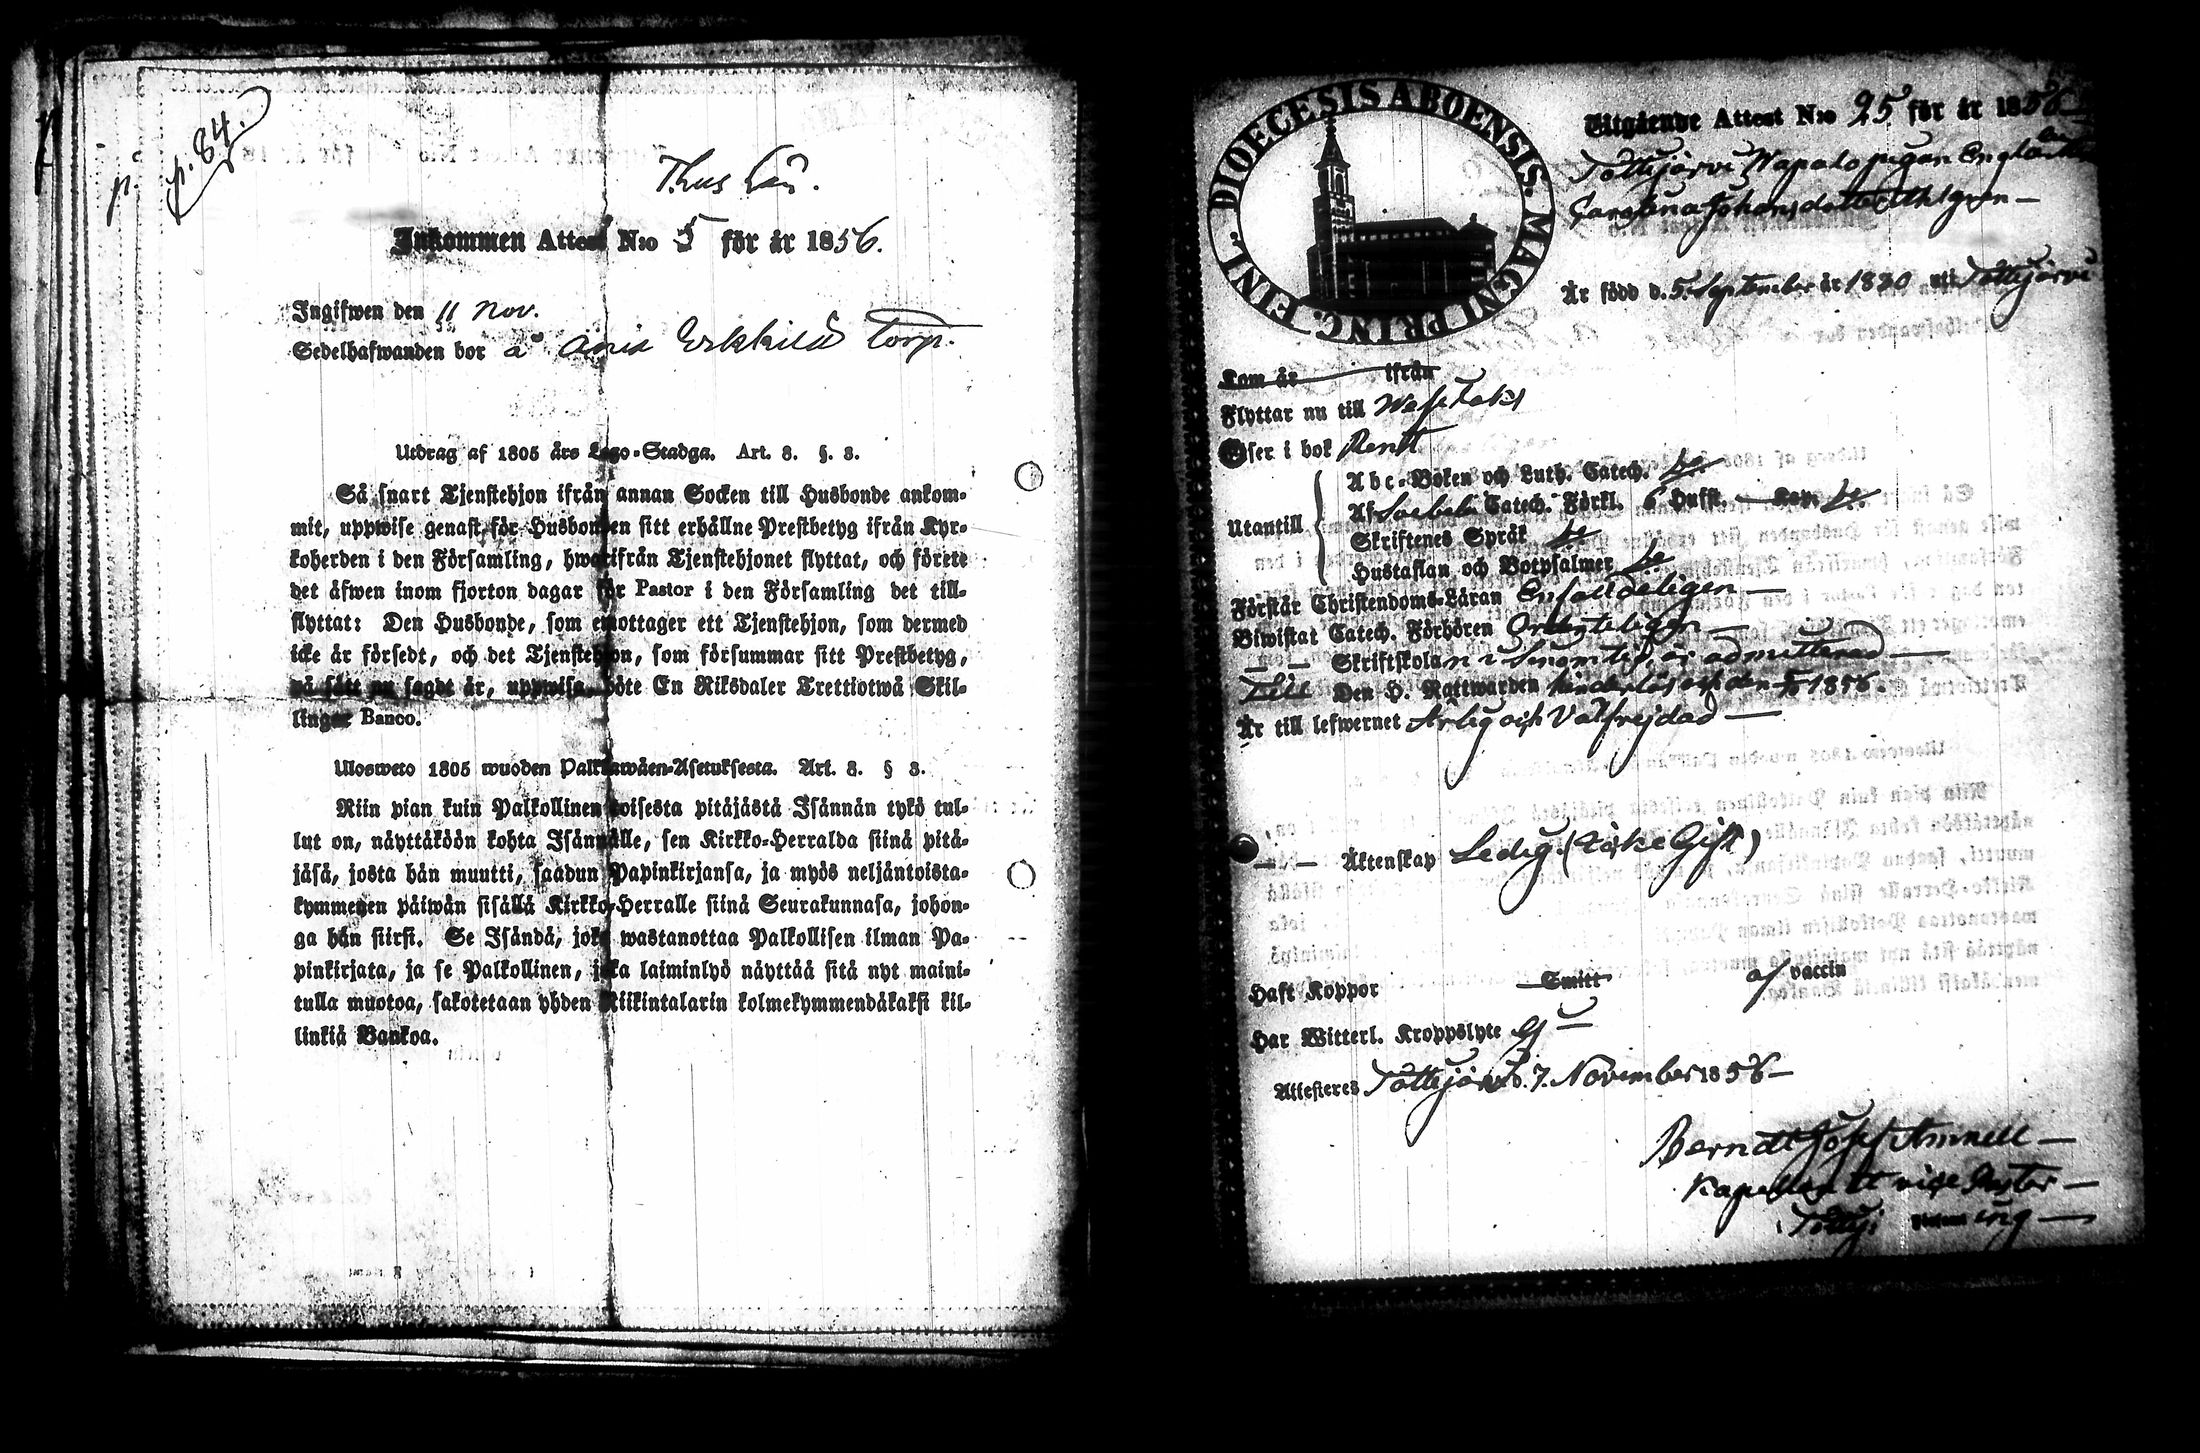 p. 84.
Inkommen Attest N:o 5 för år 1856.
Ingifwen den 11 Nov.
Sedelhafwanden bor å Torp.
Utdrag af 1805 års Lego-Stadga. Art. 8. §. 3.
Så snart Tjenstehjon ifrån annan Socken till Husbonde ankom-
mit, uppwise genast för Husbonden sitt erhållne Prestbetyg ifrån Kyr-
koherden i den Församling, hwarifrån Tjenstehjonet flyttat, och förete
det äfwen inom fjorton dagar för Pastor i den Församling det till-
flyttat: Den Husbonde, som emottager ett Tjenstehjon, som dermed
icke är försedt, och det Tjenstehjon, som försummar sitt Prestbetyg,
på sätt nu sagdt är, uppwisa, böte En Riksdaler Trettiotwå Skil-
lingar Banco.
Ulosweto 1805 wuoden Palkkawäen-Asetuksesta. Art. 8. § 3.
Niin pian kuin Palkollinen toisesta pitäjästä Isännän tykö tul-
lut on, näyttäköön kohta Isännälle, sen Kirkko-Herralda siinä pitä-
jäsä, josta hän muutti, saadun Papinkirjansa, ja myös neljäntoista-
kymmenen päiwän sisällä Kirkko-Herralle siinä Seurakunnasa, johon-
ga hän siirsi. Se Isändä, joka wastanottaa Palkollisen ilman Pa-
pinkirjata, ja se Palkollinen, joka laiminlyö näyttää sitä nyt maini-
tulla muotoa, sakotetaan yhden Riikintalarin kolmekymmendäkaksi kil-
linkiä Bankoa.
FINL. DIOECESIS ABOENSIS. MAGNI PRINC.
Utgående Attest N:o 25 för år 1856
Tottijärvi pigan
Carolina Johansdotter
Är född d. 5. September år 1830 uti Tottijärvi
Kom år ifrån
Flyttar nu till
Läser i bok Rent
Utantill
Abc-Boken och Luth. Catech.
Af Catech. Förkl. 6 Hufst. Kap.
Skriftenes Språk
Hustaflan och Botpsalmer
Förstår Christendoms-Läran Enfaldeligen
Biwistat Catech. Förhören Ordenteligen
Skriftskolan i sinom tid, är admitterad
Till Den H. Nattwarden den 1856.
Är till lefwernet Ärlig och Välfrejdad
Äktenskap Ledig. (Icke Gift)
Haft Koppor Smitt af vaccin
Har Witterl. Kroppslyte Ej
Attesteras Tottijärvi d. 7. November 1856
Berndt Josef Amnell
Kapellan et vice Pastor